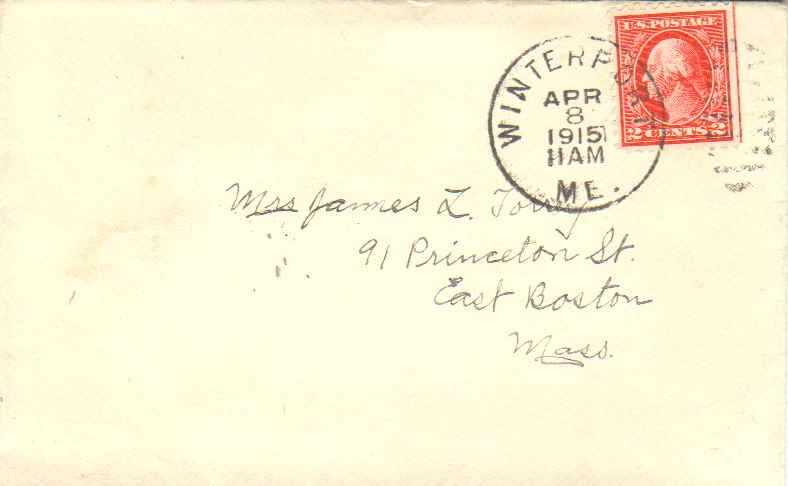 U.S. POSTAGE
2 CENTS 2
WINTERPORT
APR
8
1915
11AM
ME.
Mrs James L. Torrey
91 Princeton St.
East Boston
Mass.